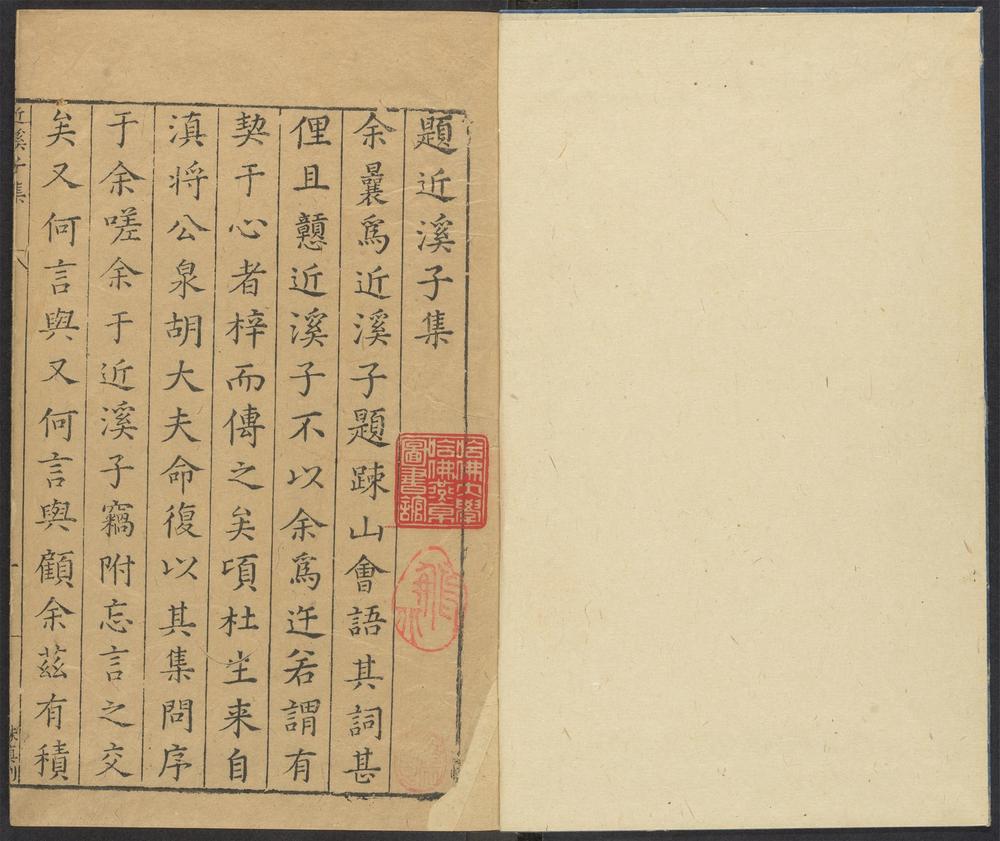 題近溪子集
余曩爲近溪子題踈山會語其詞甚
俚且戇近溪子不以余爲迂若謂有
契于心者梓而傳之矣頃杜生来自
滇将公泉胡大夫命復以其集問序
于余嗟余于近溪子竊附忘言之交
矣又何言與又何言與顧余茲有積
近溪子集
一
哈佛大學
哈佛燕京
圖書館